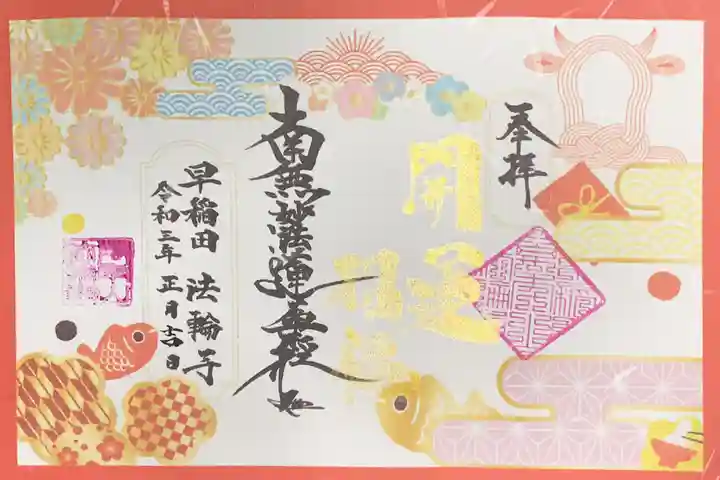 奉拝
開運
招福
南無妙法蓮華経
早稲田 法輪寺
令和三年 正月吉日